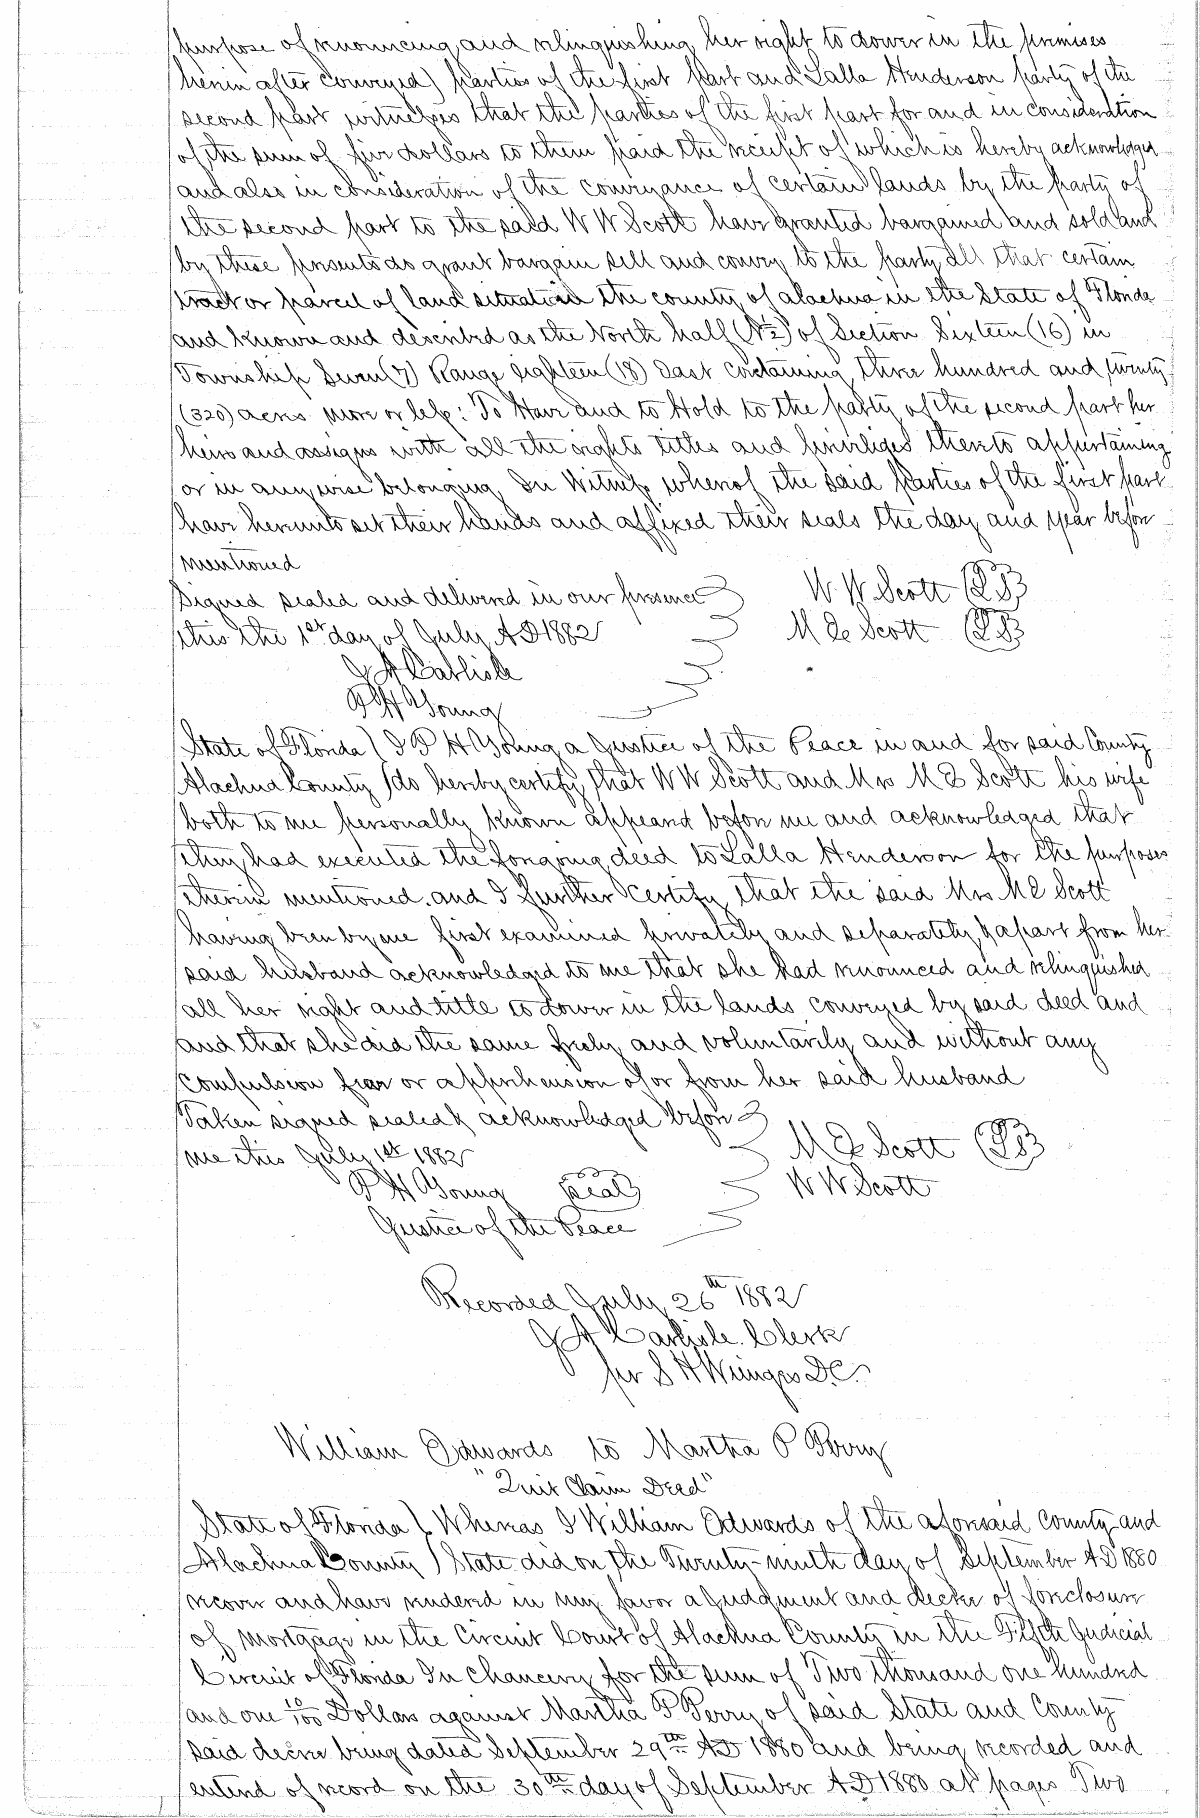 purpose of renouncing and relinquishing her right to dower in the premises
herein after conveyed) parties of the first part and Lalla Henderson party of the
second part witnesses that the parties of the first part for and in consideration
of the sum of five dollars to them paid the receipt of which is hereby acknowledged
and also in consideration of the conveyance of certain lands by the party of
the second part to the said W W Scott have granted bargained and sold and
by these presents do grant bargain sell and convey to the party all that certain
tract or parcel of land situate in the county of alachua in the State of Florida
and known and described as the North half (N½) of Section Sixteen (16) in
Township Seven (7) Range eighteen (18) East containing three hundred and twenty
(320) acres more or less: To Have and to Hold to the party of the second part her
heirs and assigns with all the rights titles and privileges thereto appertaining
or in anywise belonging In Witness whereof the said Parties of the first part
have hereunto set their hands and affixed their seals the day and year before
mentioned
Signed sealed and delivered in our presence W W Scott (LS)
this the 1st day of July A D 1882 M E Scott (LS)
J A Carlisle
P H Young
State of Florida ) I P H Young a Justice of the Peace in and for said County
Alachua County ) do hereby certify that W W Scott and Mrs M E Scott his wife
both to me personally known appeared before me and acknowledged that
they had executed the foregoing deed to Lalla Henderson for the purposes
therein mentioned. and I further certify that the said Mrs M E Scott
having been by me first examined privately and separately & apart from her
said husband acknowledged to me that she had renounced and relinquished
all her right and title to dower in the lands conveyed by said deed and
and that she did the same freely and voluntarily and without any
compulsion fear or apprehension of or from her said husband
Taken signed sealed & acknowledged before M E Scott (LS)
me this July 1st 1882 W W Scott
P H Young (seal)
Justice of the Peace
Recorded July 26th 1882
J A Carlisle Clerk
per S H Wienges D.C.
William Edwards to Martha P Perry
"Quit Claim Deed"
State of Florida ) Whereas I William Edwards of the aforesaid County and
Alachua County ) State did on the Twenty-ninth day of September A D 1880
recover and have rendered in my favor a judgment and decree of foreclosure
of mortgage in the Circuit Court of Alachua County in the Fifth Judicial
Circuit of Florida In Chancery for the sum of Two thousand one hundred
and one 10/100 Dollars against Martha P Perry of said State and County
said decree being dated September 29th AD 1880 and being recorded and
entend of record on the 30th day of September A D 1880 at pages Two